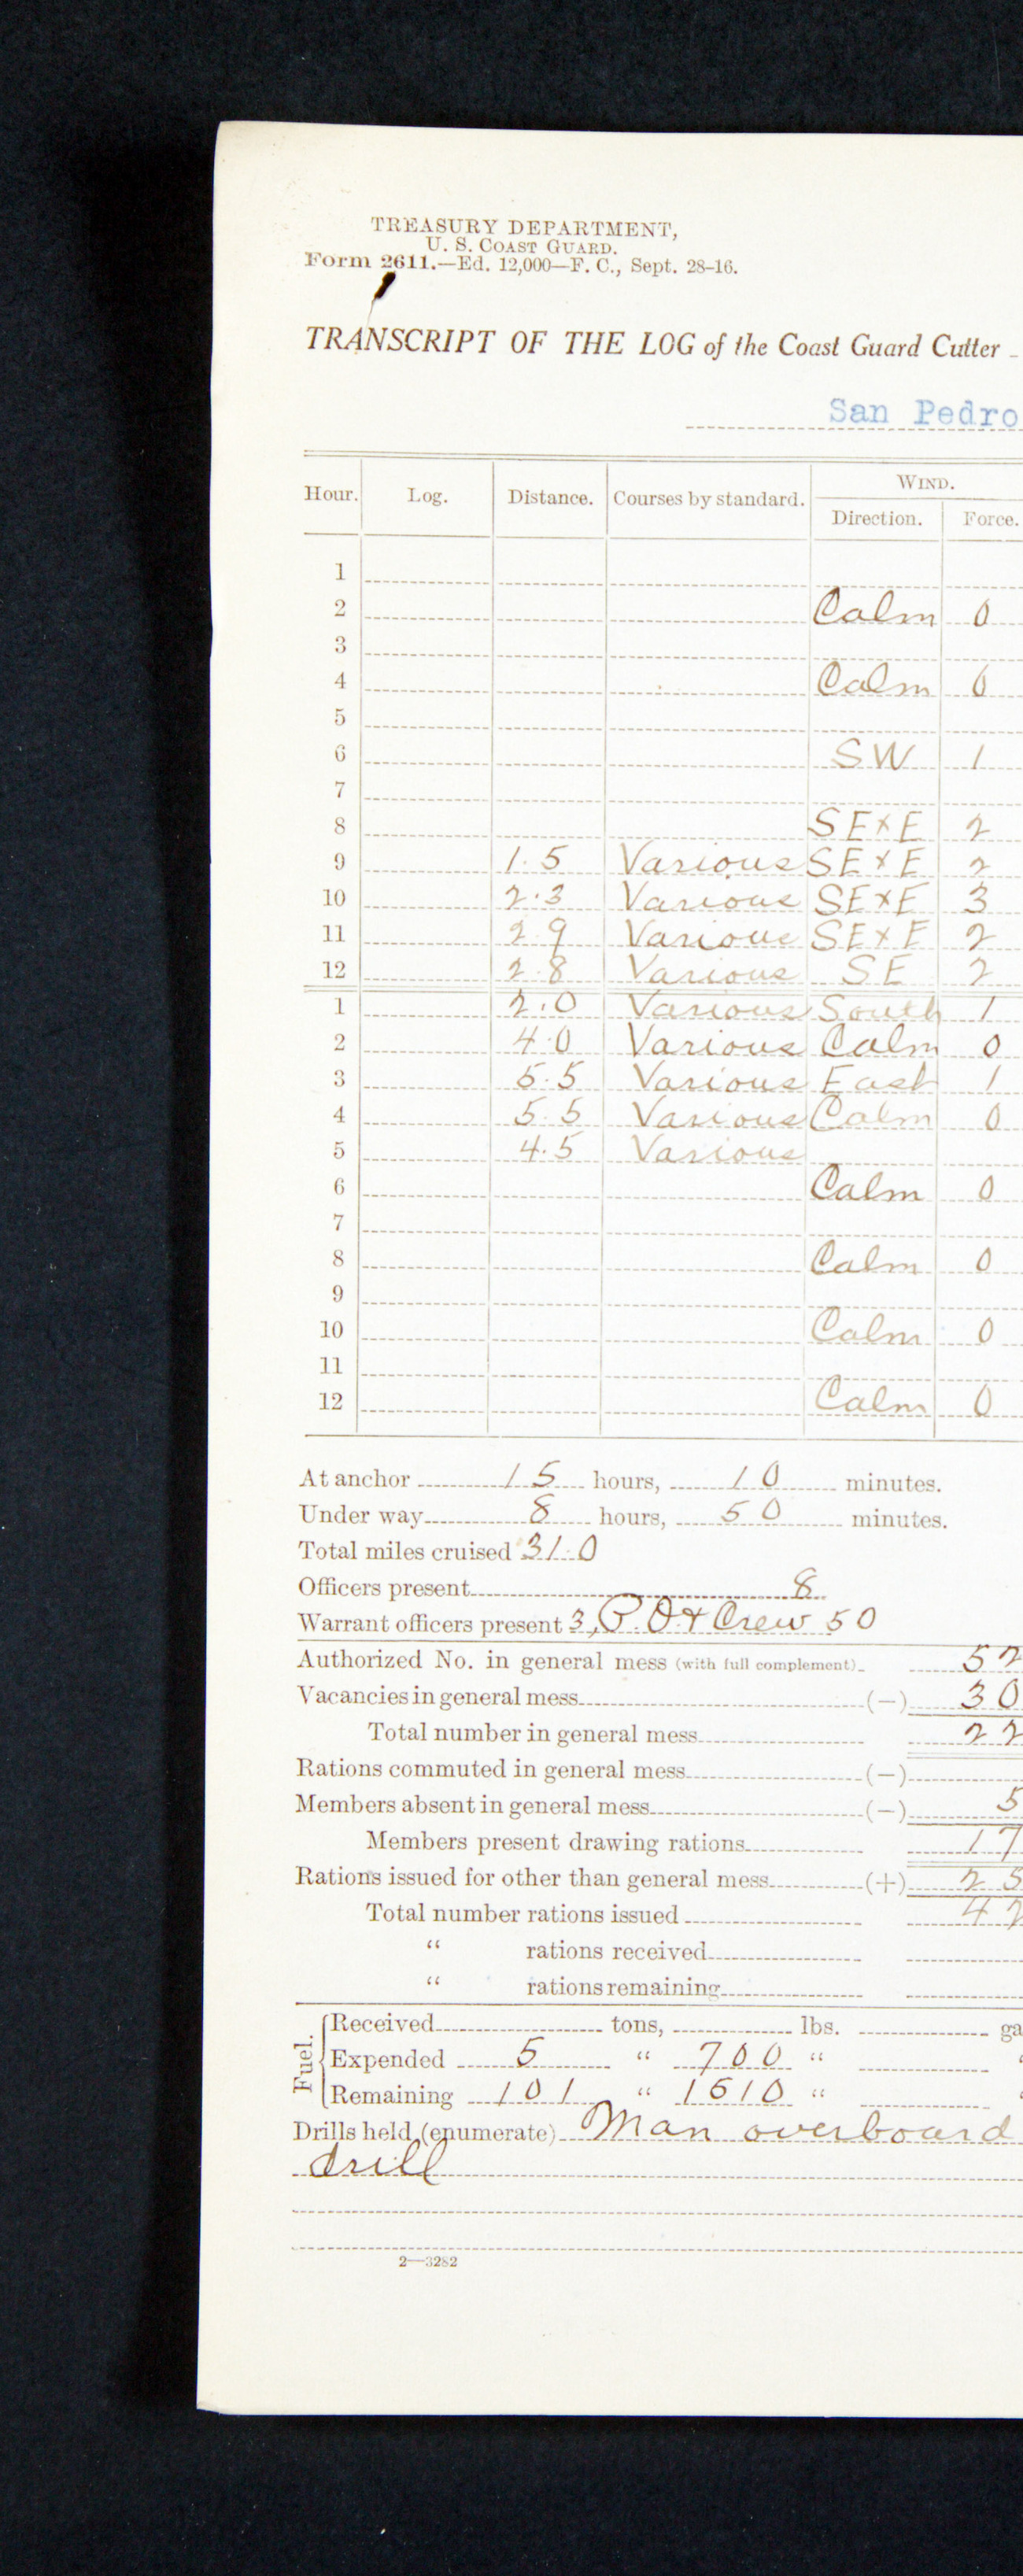 TREASURY DEPARTMENT,
U. S. COAST GUARD.
Form 2611.—Ed. 12,000—F. C., Sept. 28-16.
TRANSCRIPT OF THE LOG of the Coast Guard Cutter
San Pedro
Hour. Log. Distance. Courses by standard. WIND.
Direction. Force.
1
2 Calm 0
3
4 Calm 0
5
6 SW 1
7
8 SE×E 2
9 1.5 Various SE×E 2
10 2.3 Various SE×E 3
11 2.9 Various SE×E 2
12 2.8 Various SE 2
1 2.0 Various South 1
2 4.0 Various Calm 0
3 5.5 Various East 1
4 5.5 Various Calm 0
5 4.5 Various
6 Calm 0
7
8 Calm 0
9
10 Calm 0
11
12 Calm 0
At anchor 15 hours, 10 minutes.
Under way 8 hours, 50 minutes.
Total miles cruised 31.0
Officers present 8
Warrant officers present 3, P.O + Crew 50
Authorized No. in general mess (with full complement) 52
Vacancies in general mess (—) 30
Total number in general mess 22
Rations commuted in general mess (—)
Members absent in general mess (—) 5
Members present drawing rations 17
Rations issued for other than general mess (+) 25
Total number rations issued 42
“ rations received
“ rations remaining
Fuel.
Received tons, lbs. ga
Expended 5 “ 700 “
Remaining 101 “ 1510 “
Drills held (enumerate) Man overboard
drill
2—3282